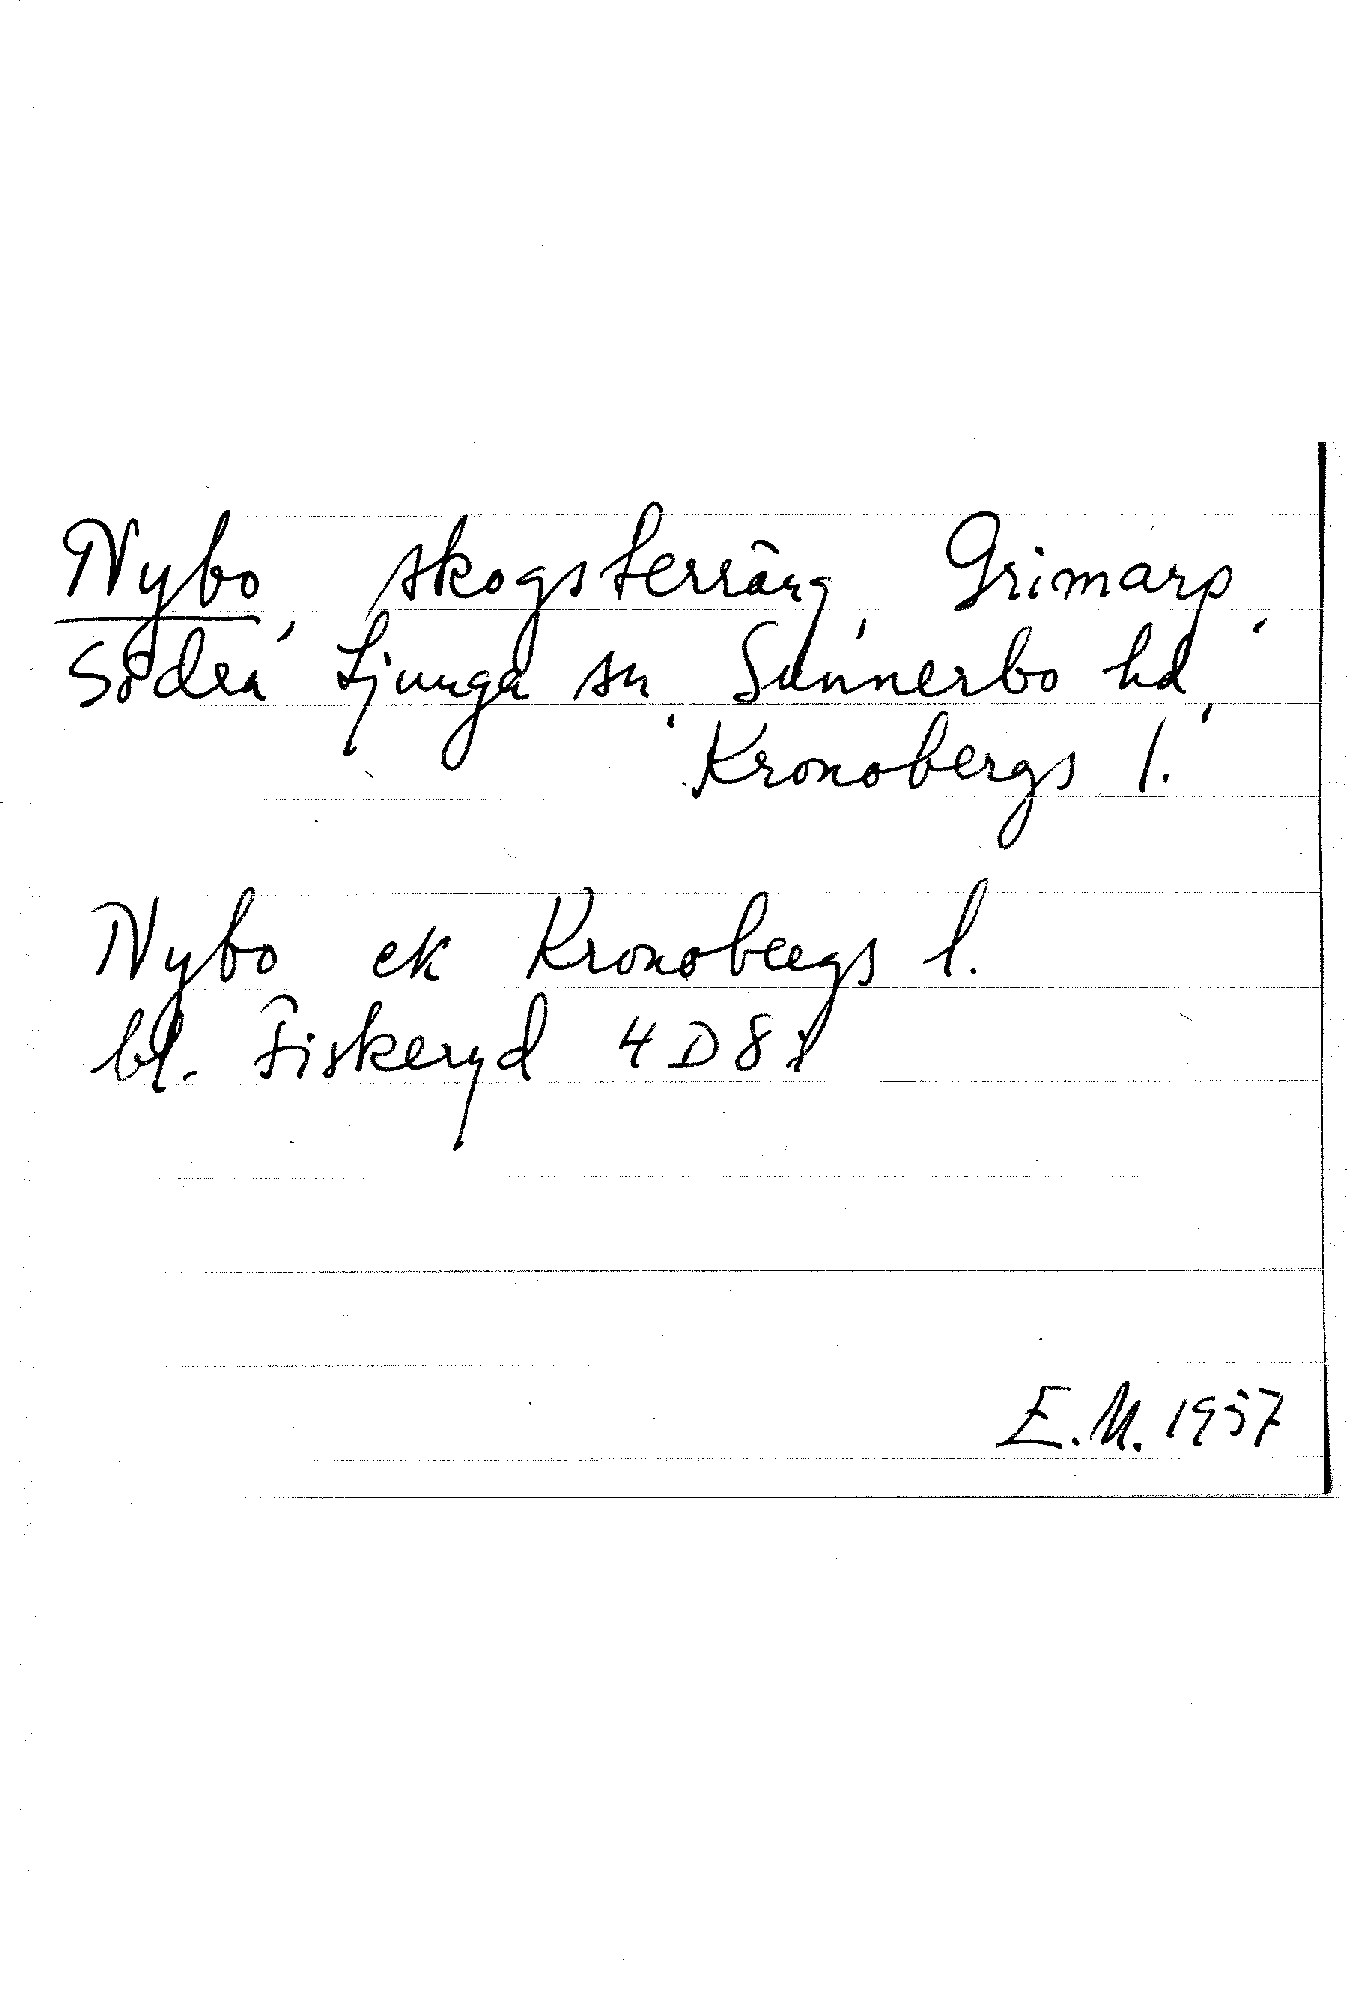 Nybo, skogsterräng, Grimarp,
Södra Ljunga sn, Sunnerbo hd,
Kronobergs l.
Nybo ek Kronobergs l.
bl. Fiskeryd 4D8i
E.M. 1957